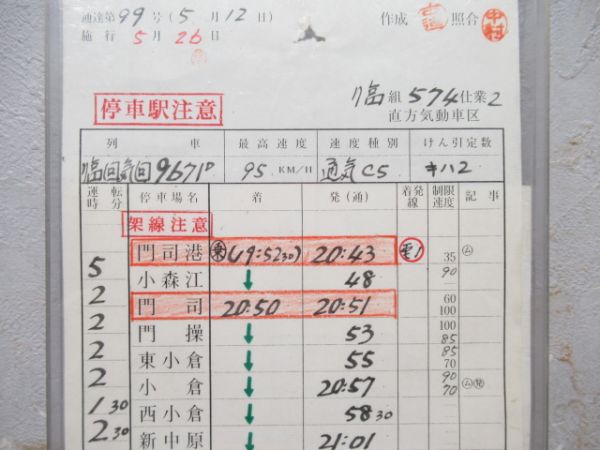 通達第99号(5月12日) 作成 照合 中村
施行 5月26日
臨組574仕業2
停車駅注意
直方気動車区
列車 最高速度 速度種別 けん引定数
臨回気回9671D 95 KM/H 通気C5 キハ2
運転時分 停車場名 着 発(通) 着発線 制限速度 記事
架線注意
門司港 (19:5230) 20:43 35 ㋰
5 小森江 ↓ 48 90
2 門司 20:50 20:51 60 100
2 門操 ↓ 53 100 85
2 東小倉 ↓ 55 85 70
2 小倉 ↓ 20:57 90 70 ㋰
1 30 西小倉 ↓ 58 30
2 30 新中原 ↓ 21:01